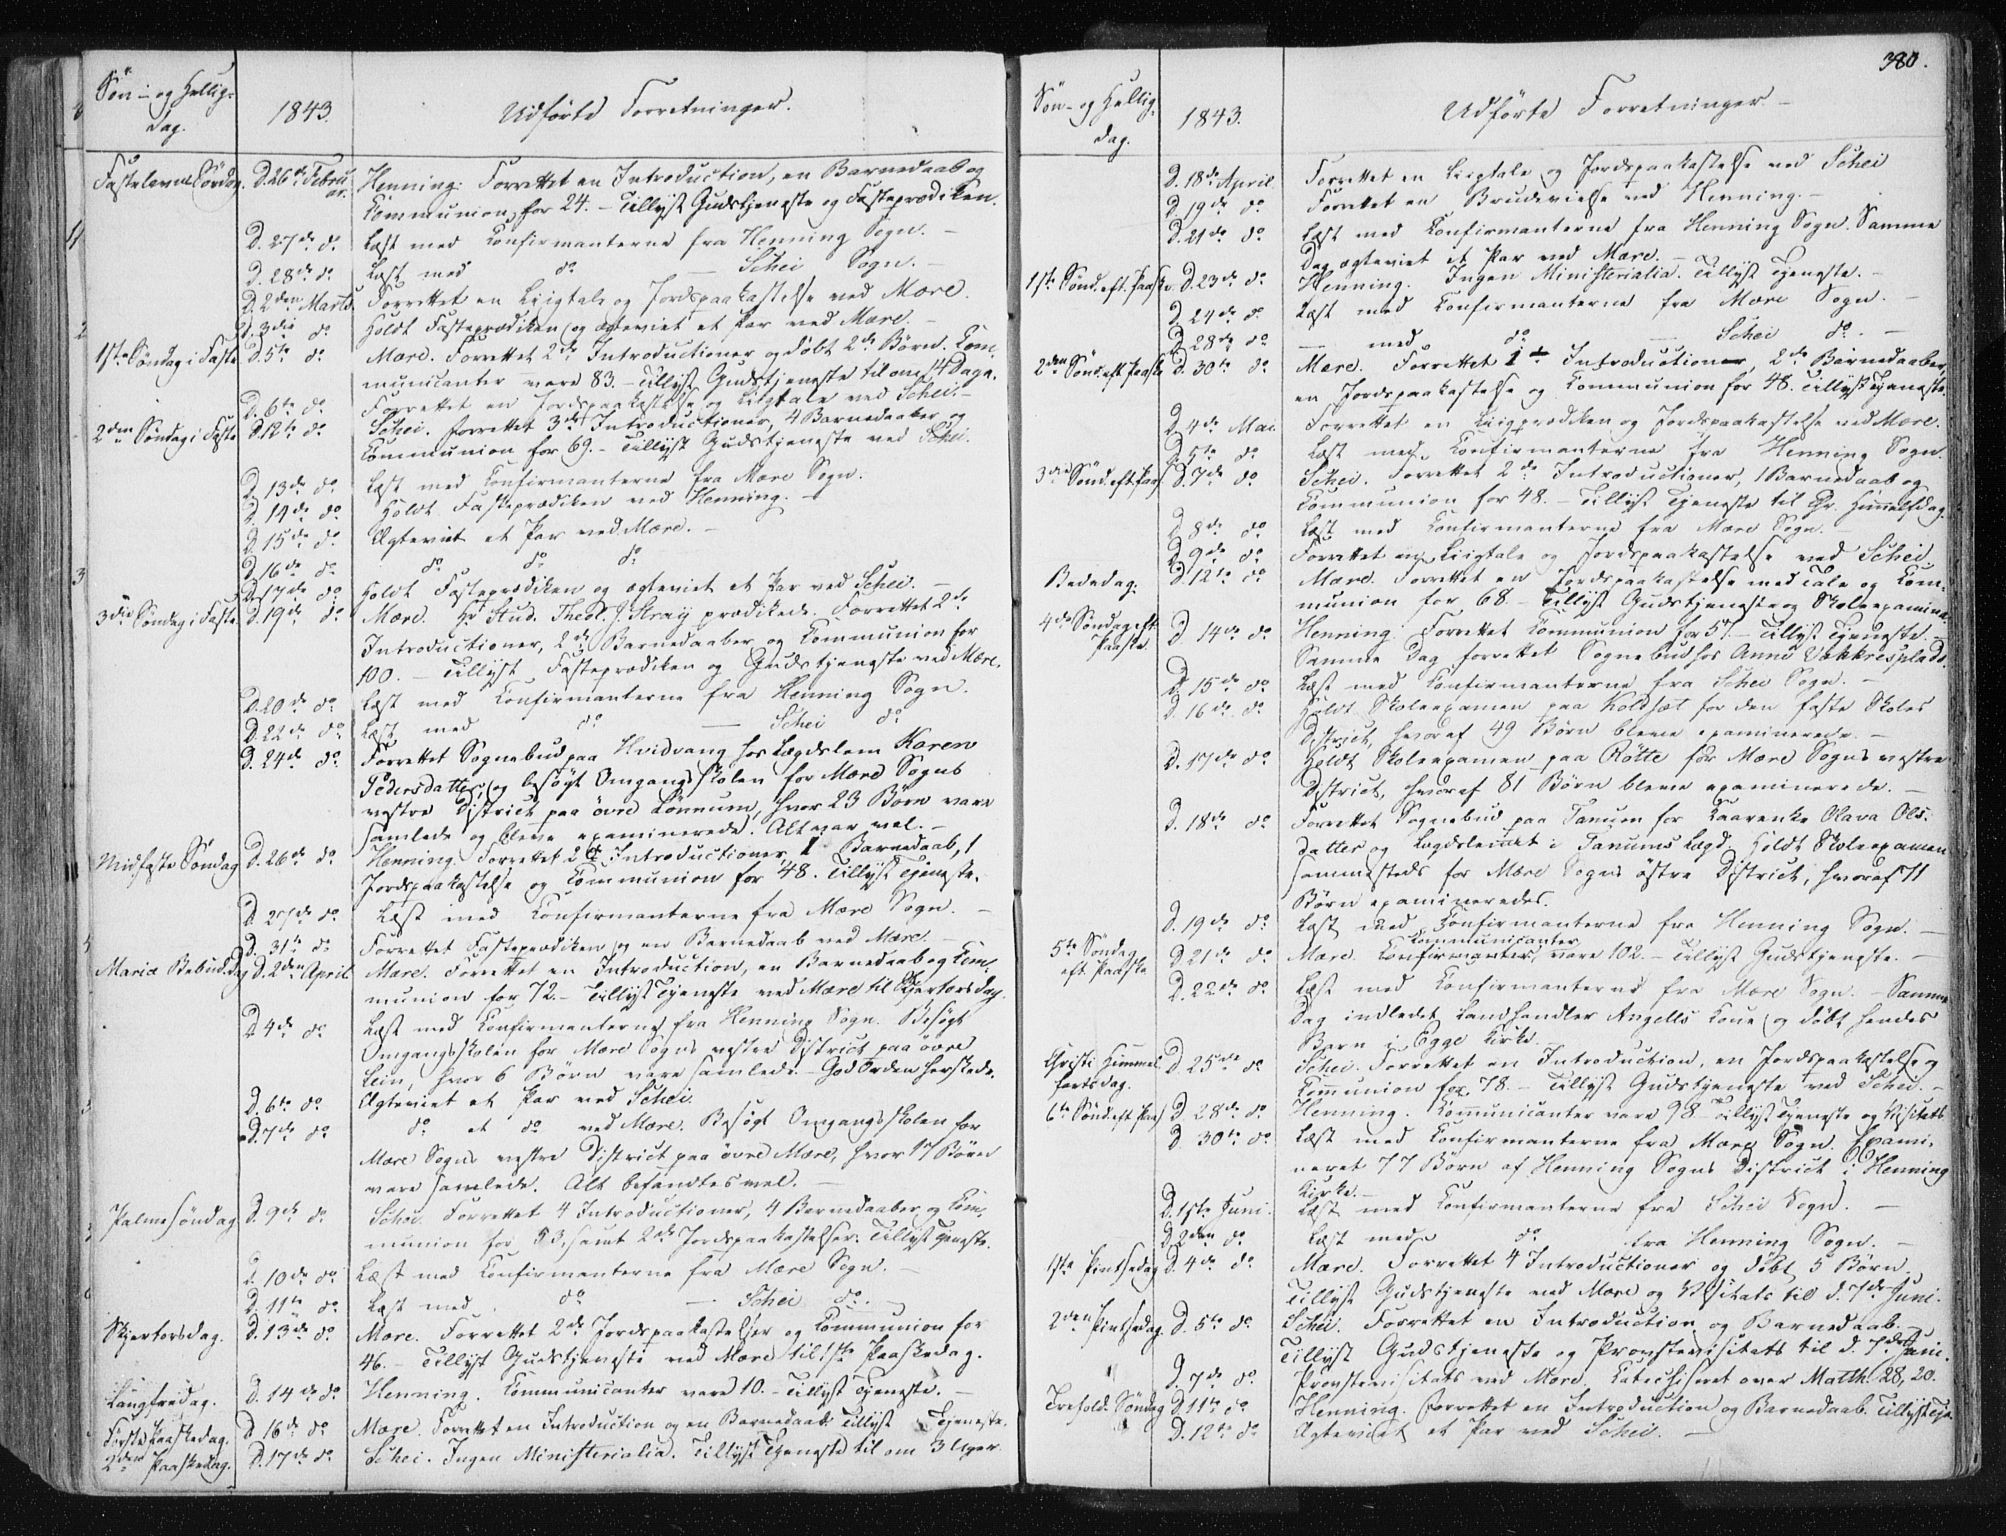 Søn- og Hellig-
dag.
1843.
Udførte Forretninger.
Fastelavns Söndag. D. 26de Febru Henning. Forrettet en Introduction, en Barnedaab og
ar. Communion for 24. – Tillyst Gudstjeneste og Fasteprædiken.
D. 27de do Læst med Confirmanterne fra Henning Sogn. –
D. 28de do Læst med do – Schei Sogn. –
D. 2den Marts. Forrettet en Liigtale og Jordspaakastelse ved Mære.
D. 3die do Holdt Fasteprædiken og ægteviet et Par ved Mære. –
1ste Søndag i Faste D. 5te do Mære. Forrettet 2de Introductioner og döbt 2de Børn. Com-
municanter vare 83. – Tillyst Gudstjeneste til om 14 Dage.
D. 6te do Forrettet en Jordspaakastelse og Liigtale ved Schei. –
2den Søndag i Faste D. 12te do Schei. Forrettet 3de Introductioner, 4 Barnedaaber og
Communion for 69. – Tillyst Gudstjeneste ved Schei.
D. 13de do Læst med Confirmanterne fra Mære Sogn.
D. 14de do Holdt Fasteprædiken ved Henning. –
D. 15de do Ægteviet et Par ved Mære. –
D. 16de do do do do
D. 17de do Holdt Fasteprædiken og ægteviet et Par ved Schei. –
3die Søndag i Faste D. 19de do Mære. Hr Stud. Theol. J. Stray prædikede. Forrettet 2de
Introductioner, 2de Barnedaaber og Communion for
100. – Tillyst Fasteprædiken og Gudstjeneste ved Mære.
D. 20de do Læst med Confirmanterne fra Henning Sogn.
D. 22de do Læst med do – Schei do
D. 24de do Forrettet Sognebud paa Hvidvang hos Lægdslem Karen
Pedersdatter, og besøgt Omgangsskolen for Mære Sogns
vestre District paa övre Lönnum, hvor 23 Börn vare
samlede og bleve examinerede. Alt var vel. –
Midfaste Søndag D. 26de do Henning. Forrettet 2de Introductioner, 1 Barnedaab, 1
Jordspaakastelse og Communion for 48. Tillyst Tjeneste.
D. 27de do Læst med Confirmanterne fra Mære Sogn. –
D. 31te do Forrettet Fasteprædiken og en Barnedaab ved Mære. –
Mariæ Bebud. Dag D. 2den April Mære. Forrettet en Introduction, en Barnedaab og Com-
munion for 72. – Tillyst Tjeneste ved Mære til Skjertorsdag.
D. 4de do Læst med Confirmanterne fra Henning Sogn. Besögt
Omgangsskolen for Mære Sogns vestre District paa övre
Lein, hvor 6 Börn vare samlede. – God Orden herskede.
D. 6te do Ægteviet et Par ved Schei.
D. 7de do do et do ved Mære. Besögt Omgangsskolen for
Mære Sogns vestre District paa övre Mære, hvor 17 Börn
vare samlede. Alt befandtes vel. –
Palmesøndag D. 9de do Schei. Forrettet 4 Introductioner, 4 Barnedaaber og Com-
munion for 53, samt 2de Jordspaakastelser. Tillyst Tjeneste.
D. 10de do Læst med Confirmanterne fra Mære Sogn. –
D. 11te do Læst med do – Schei do. –
Skjertorsdag. D. 13de do Mære. Forrettet 2de Jordspaakastelser og Communion for
46. – Tillyst Gudstjeneste ved Mære til 1ste Paaskedag.
Langfredag. D. 14de do Henning. Communicanter vare 10. – Tillyst Tjeneste. –
Første Paaskedag. D 16de do Mære. Forrettet en Introduction og en Barnedaab. Tillyst Tjeneste.
2den Paaskedag. D. 17de do Schei. Ingen Ministerialia. Tillyst Tjeneste til om 3 Uger.
380.
Søn- og Hellig-
dag.
1843.
Udførte Forretninger –
D. 18de April Forrettet en Liigtale og Jordspaakastelse ved Schei
D. 19de do Forrettet en Brudevielse ved Henning. –
D. 21de do Læst med Confirmanterne fra Henning Sogn. Samme
Dag ægteviet et Par ved Mære. –
1ste Sønd. eft. Paaske. D. 23de do Henning. Ingen Ministerialia. Tillyst Tjeneste. –
D. 24de do Læst med Confirmanterne fra Mære Sogn. –
D. 28de do – med do – Schei do. –
2den Sønd. eft Paaske D. 30te do Mære. Forrettet 1 Introduction, 2de Barnedaaber,
en Jordspaakastelse og Communion for 48. Tillyst Tjeneste.
D. 4de Mai. Forrettet en Liigprædiken og Jordspaakastelse ved Mære.
D. 5te do Læst med Confirmanterne fra Henning Sogn.
3die Sønd. eft Paas. D. 7de do Schei. Forrettet 2de Introductioner, 1 Barnedaab og
Communion for 48. – Tillyst Tjeneste til Chr. Himmelfdag.
D. 8de do Læst med Confirmanterne fra Mære Sogn.
D. 9de do Forrettet en Liigtale og Jordspaakastelse ved Schei
Bededag. D. 12te do Mære. Forrettet en Jordspaakastelse med Tale og Com-
munion for 68. – Tillyst Gudstjeneste og Skoleexamina.
4de Søndag eft. D 14de do Henning. Forrettet Communion for 57. – Tillyst Tjeneste. –
Paaske. Samme Dag forrettet Sognebud hos Anne Vekkresplads.
D. 15de do Læst med Confirmanterne fra Schei Sogn. –
D. 16de do Holdt Skoleexamen paa Koldsæt for den faste Skoles
District, hvoraf 49 Børn bleve examinerede. –
D. 17de do Holdt Skoleexamen paa Rötte for Mære Sogns vestre
District, hvoraf 81 Börn bleve examinerede. –
D. 18de do Forrettet Sognebud paa Tanum for Kaarenke Olava Ols-
datter og Lægdslemet i Tanums Lægd. Holdt Skoleexamen
sammesteds for Mære Sogns östre District, hvoraf 71
Börn examineredes.
D. 19de do Læst med Confirmanterne fra Henning Sogn. –
5te Søndag D 21de do Mære. Confirmanter Communicanter vare 102. – Tillyst Gudstjeneste. –
eft Paaske
D. 22de do Læst med Confirmanterne fra Mære Sogn. – Samme
Dag indledet Landhandler Angells Kone og döbt hendes
Barn i Egge Kirke.
Christi Himmel- D 25de do Schei. Forrettet en Introduction, en Jordspaakastelse og
fartsdag. Communion for 78. – Tillyst Gudstjeneste ved Schei. –
6te Sønd. eft Paas D 28de do Henning. Communicanter vare 98 – Tillyst Tjeneste og Visitats
D 30te do Læst med Confirmanterne fra Mære Sogn. Exami-
neret 77 Børn af Henning Sogns District i Henning
Kirke. –
D. 1ste Juni. Læst med Confirmanterne fra Schei Sogn. –
D 2den do Læst med do fra Henning Sogn. –
1ste Pintsedag D. 4de do Mære. Forrettet 4 Introductioner og döbt 5 Börn.
Tillyst Gudstjeneste ved Mære og Visitats til d. 7de Juni.
2den Pintsedag D. 5te do Schei. Forrettet en Introduction og Barnedaab. –
Tillyst Gudstjeneste og Provstevisitats til d. 7de Juni.
D. 7de do Provstevisitats ved Mære. Catechiseret over Matth. 28, 20.
Trefold. Søndag D. 11te do Henning. Forrettet en Introduction og Barnedaab. Tillyst Tje.
D. 12te do Ægteviet et Par ved Schei. –